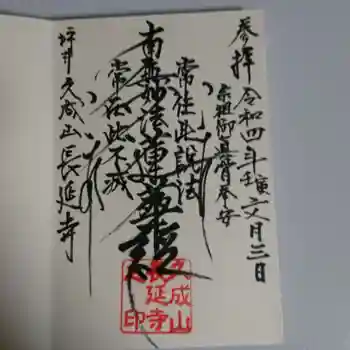 参拝 令和四年壬寅文月三日
宗祖御真骨奉安
常住此説法
南無妙法蓮華経
常在此不滅
坪井久成山長延寺
久成山
長延寺
印